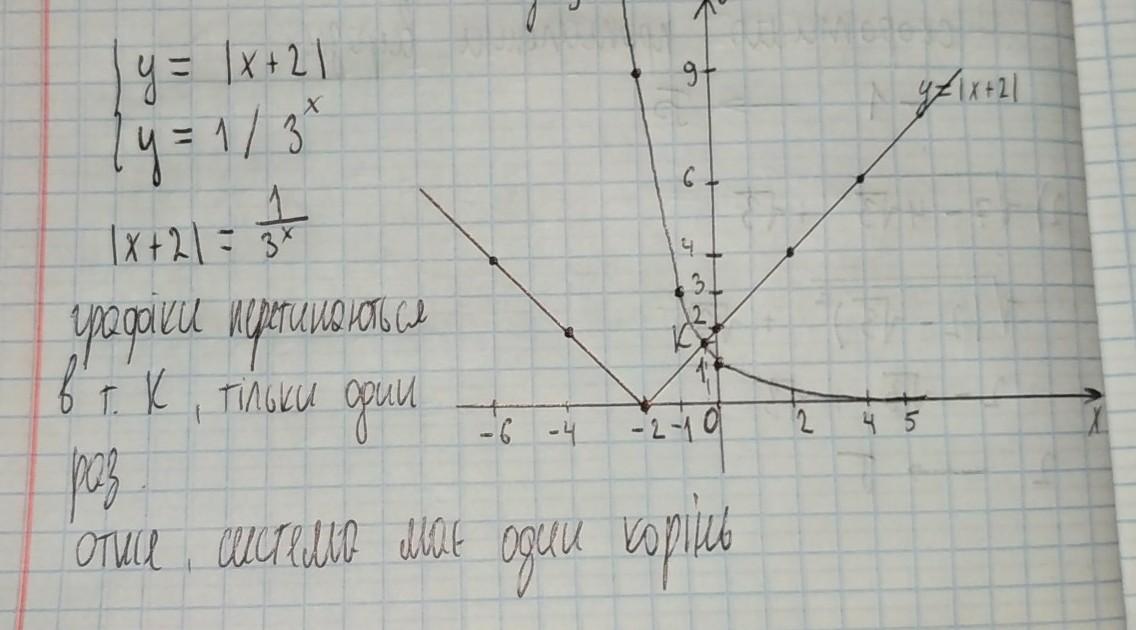 y = |x+2|
y = 1 / 3^x
|x+2| = 1/3^x
графіки перетинаються
в т. К , тільки один
раз.
отже, система має один корінь
9
y=|x+2|
6
4
3
2
K
1
-6 -4 -2 -1 0 2 4 5 x